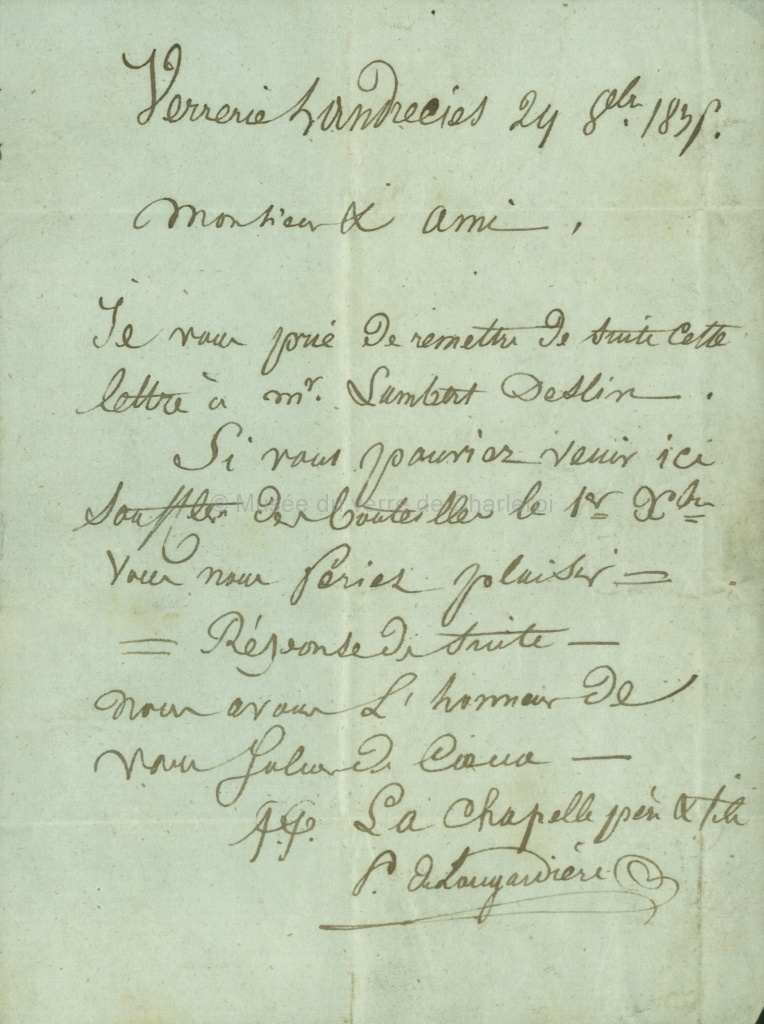 Verrerie Landrecies 29 8bre. 1835.
Monsieur & ami,
Je vous prie de remettre de suite cette
lettre à mr. Lambert Deslin.
Si vous pouriez venir ici
© Musée du Verre de Charleroi
Souffler des bouteilles le 1er Xbre
Vous nous feriez plaisir =
= Réponse de suite —
nous avons L'honneur de
vous Saluer de Coeur —
La Chapelle père & fils